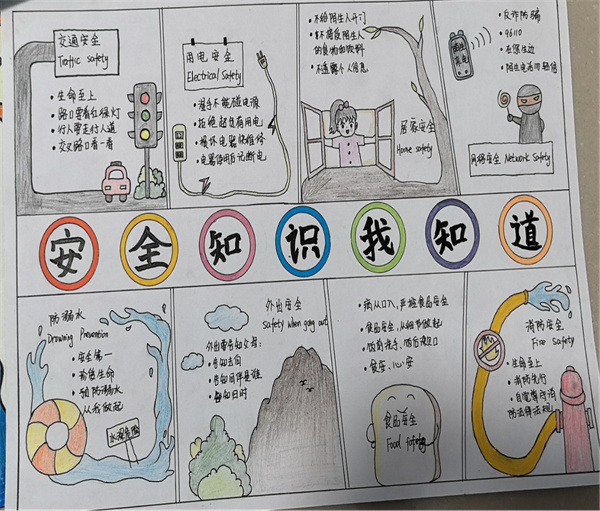 交通安全
Traffic Safety
• 生命至上
• 路口要看红绿灯
• 行人要走行人道
• 交叉路口看一看
用电安全
Electrical Safety
• 湿手不能碰电源
• 拒绝超负荷用电
• 损坏电器快维修
• 电器使用后切断电
• 不给陌生人开门
• 不透露个人信息
居家安全
Home safety
• 反诈防骗
• 96110
• 在您身边
• 陌生电话勿轻信
陌生
来电
网络安全 Network Safety
安全知识我知道
防溺水
Drowning Prevention
• 安全第一
• 珍爱生命
• 预防溺水
从我做起
水深危险
外出安全
Safety when going out
外出要告知父母:
• 告知去向
• 告知同伴是谁
• 告知归时
• 病从口入,严把食品安全
• 食品安全,从细节做起
• 饭前洗手,饭后漱口
• 食安、心安
食品安全
Food
消防安全
Fire Safety
• 生命至上
• 消防先行
• 自觉遵守消
防法律法规